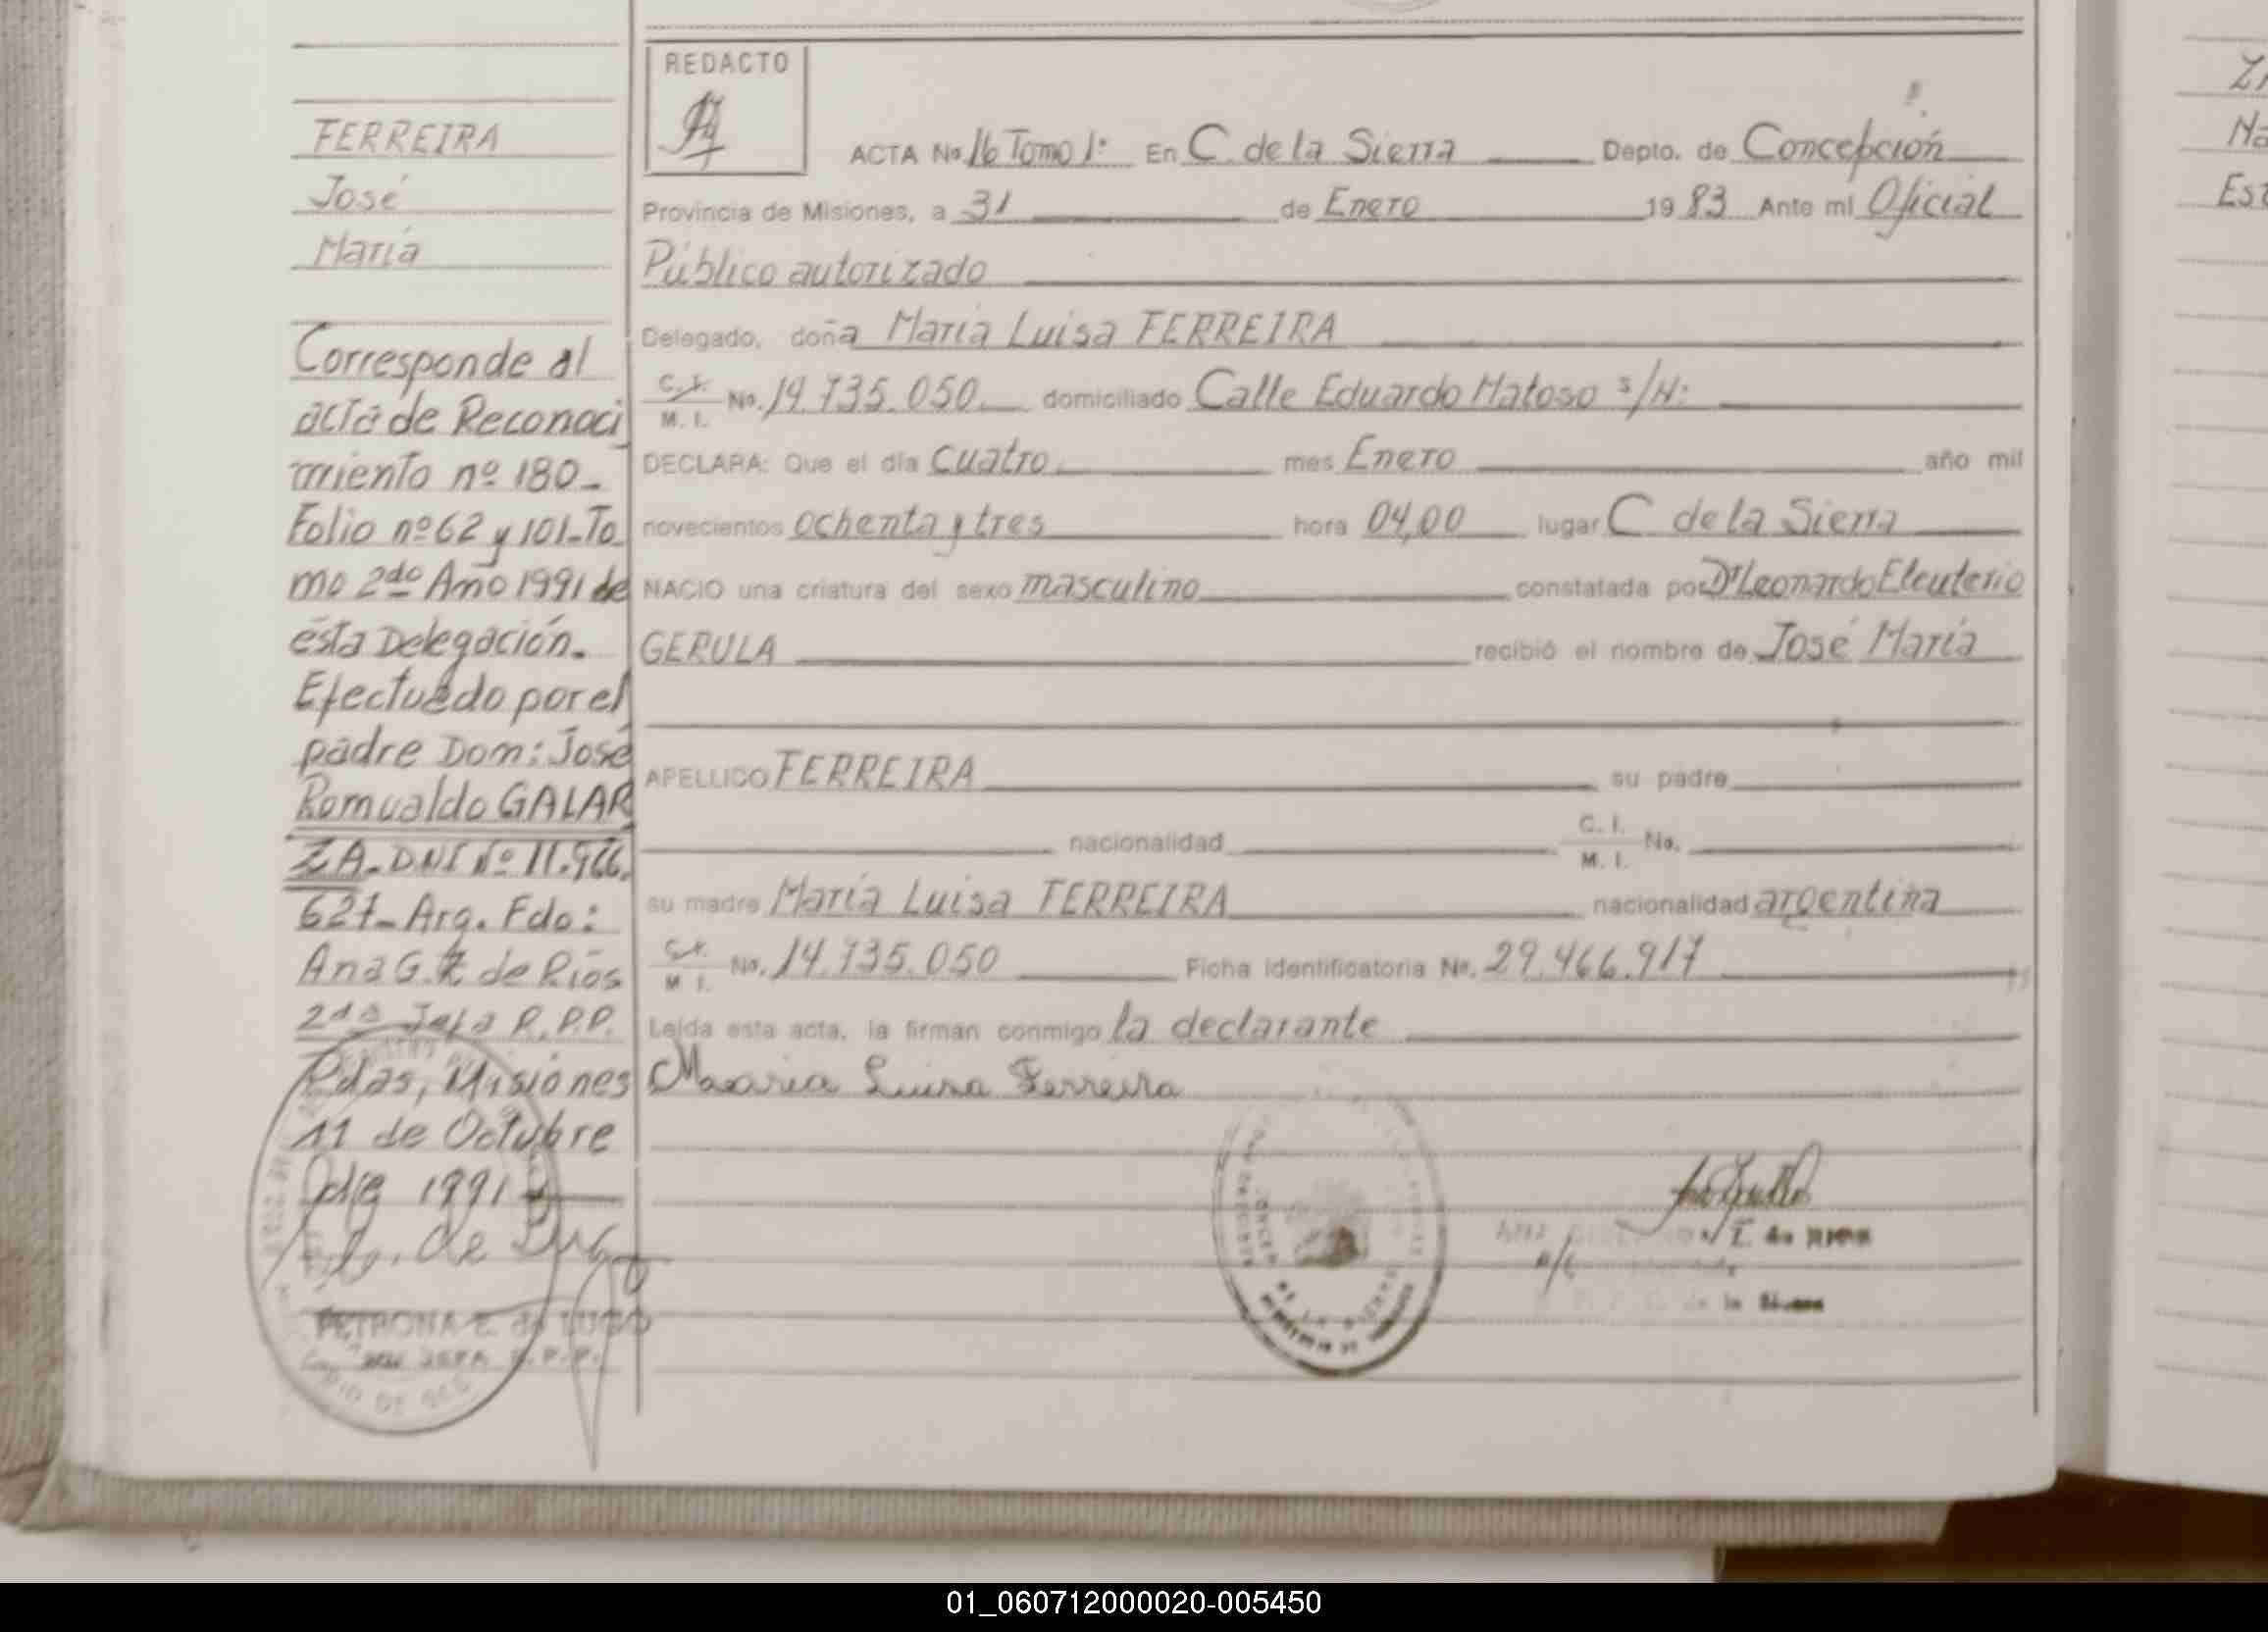 FERREIRA
José
María
Corresponde al
acta de Reconoci
miento nº 180-
Folio nº 62 y 101-To
mo 2do Año 1991 de
ésta Delegación.
Efectuado por el
padre Dom: José
Romualdo GALAR
ZA-DNI Nº 11.966.
627- Arg. Fdo:
Ana G. Z de Ríos
2da Jefa R.P.P.
Pdas, Misiones
11 de Octubre
de 1991
de Lugo
PETRONA E. de LUGO
JEFA R.P.P.
REDACTO
ACTA No 16 Tomo 1º En C. de la Sierra Depto. de Concepción
Provincia de Misiones, a 31 de Enero 19 83 Ante mi Oficial
Público autorizado
Delegado, doña María Luisa FERREIRA
C. I. M. I. No. 14.735.050 domiciliado Calle Eduardo Matoso s/N:
DECLARA: Que el día cuatro mes Enero año mil
novecientos ochenta y tres hora 04,00 lugar C. de la Sierra
NACIO una criatura del sexo masculino constatada por Dr Leonardo Eleuterio
GERULA recibió el nombre de José María
APELLIDO FERREIRA su padre
nacionalidad C. I. M. I. No.
su madre María Luisa FERREIRA nacionalidad argentina
C. I. M. I. No. 14.735.050 Ficha Identificatoria No. 29.466.917
Leída esta acta, la firman conmigo la declarante
Maria Luisa Ferreira
de RIOS
de la Sierra
Est
01_060712000020-005450